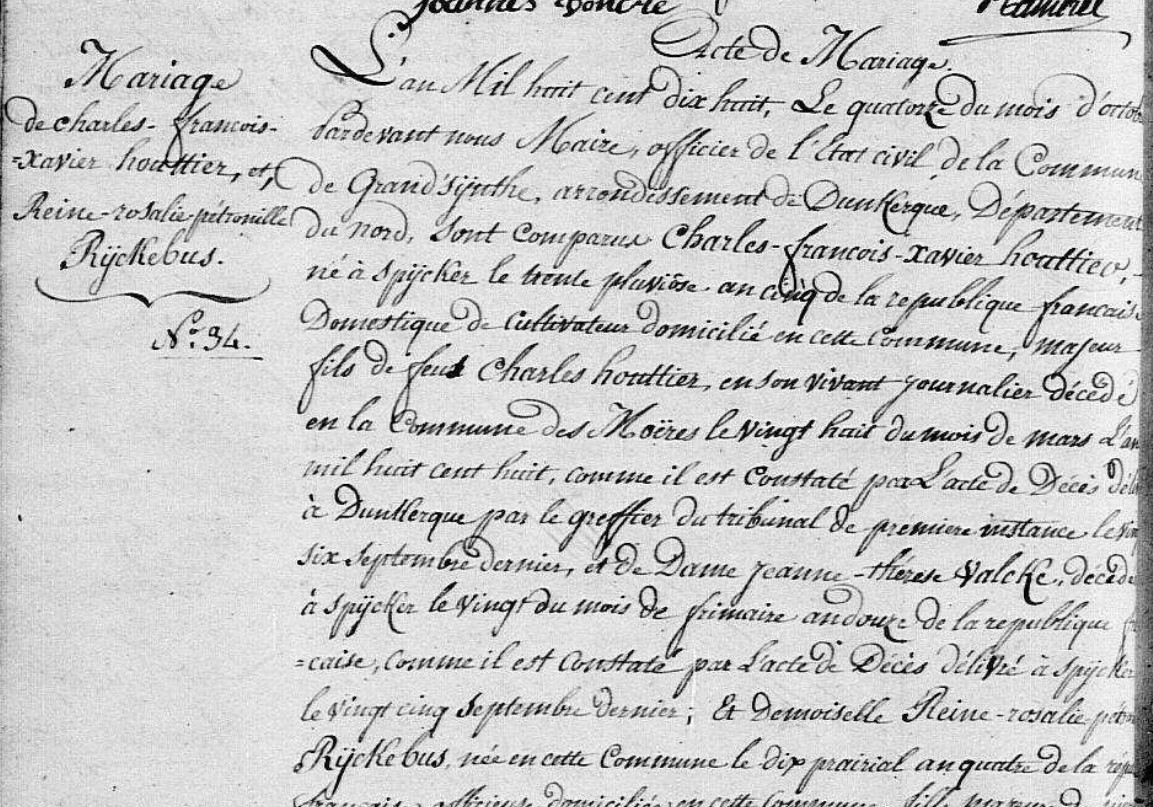 Joannes Voncre
Acte de Mariage.
Mariage
de charles-francois-
=xavier houttier, et,
Reine-rosalie-pétronille
Rÿckebus.
N.o 34.
L'an Mil huit cent dix huit, Le quatorze du mois d'octob
Pardevant nous Maire, officier de l'Etat civil, de la Commun
de Grandsÿnthe, arrondissement de Dunkerque, Département
du nord, sont comparus Charles-françois-xavier houttier,
né à spÿcker le trente pluviôse an cinq de la republique francais
Domestique de Cultivateur domicilié en cette Commune, majeur
fils de feus Charles houttier, en son vivant journalier décédé
en la Commune des Moëres le vingt huit du mois de mars L'an
mil huit cent huit, comme il est constaté par L'acte de Décès dél
à Dunkerque par le greffier du tribunal de première instance le vin
six septembre dernier, et de Dame jeanne-thérese Valcke, décedé
à spÿcker le vingt du mois de frimaire an douze de la republique fr
=caise, comme il est constaté par L'acte de Décès délivré à spÿcker
le vingt cinq septembre dernier; Et Demoiselle Reine-rosalie-pétr
Rÿckebus, née en cette Commune le dix prairial an quatre de la répu
domiciliée en cette Commune, fille